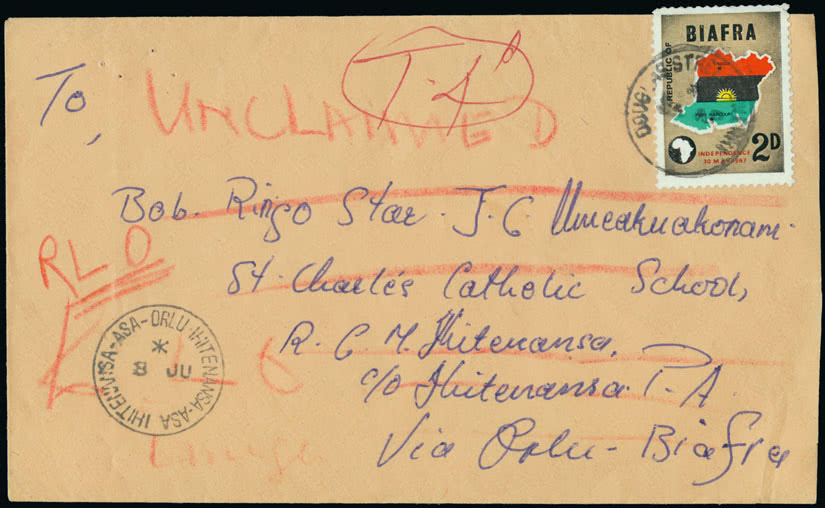 T-4d
REPUBLIC OF
BIAFRA
INDEPENDENCE
30 MAY 1967
2D
To,
UNCLAIMED
Bob. Ringo Star. J. C. Umeakuakonam.
RLO
St. Charles Catholic School,
R. C. M. Ihitenansa,
c/o Ihitenansa P. A
Via Orlu - Biafra
IHITENANSA-ASA-ORLU
*
8 JU